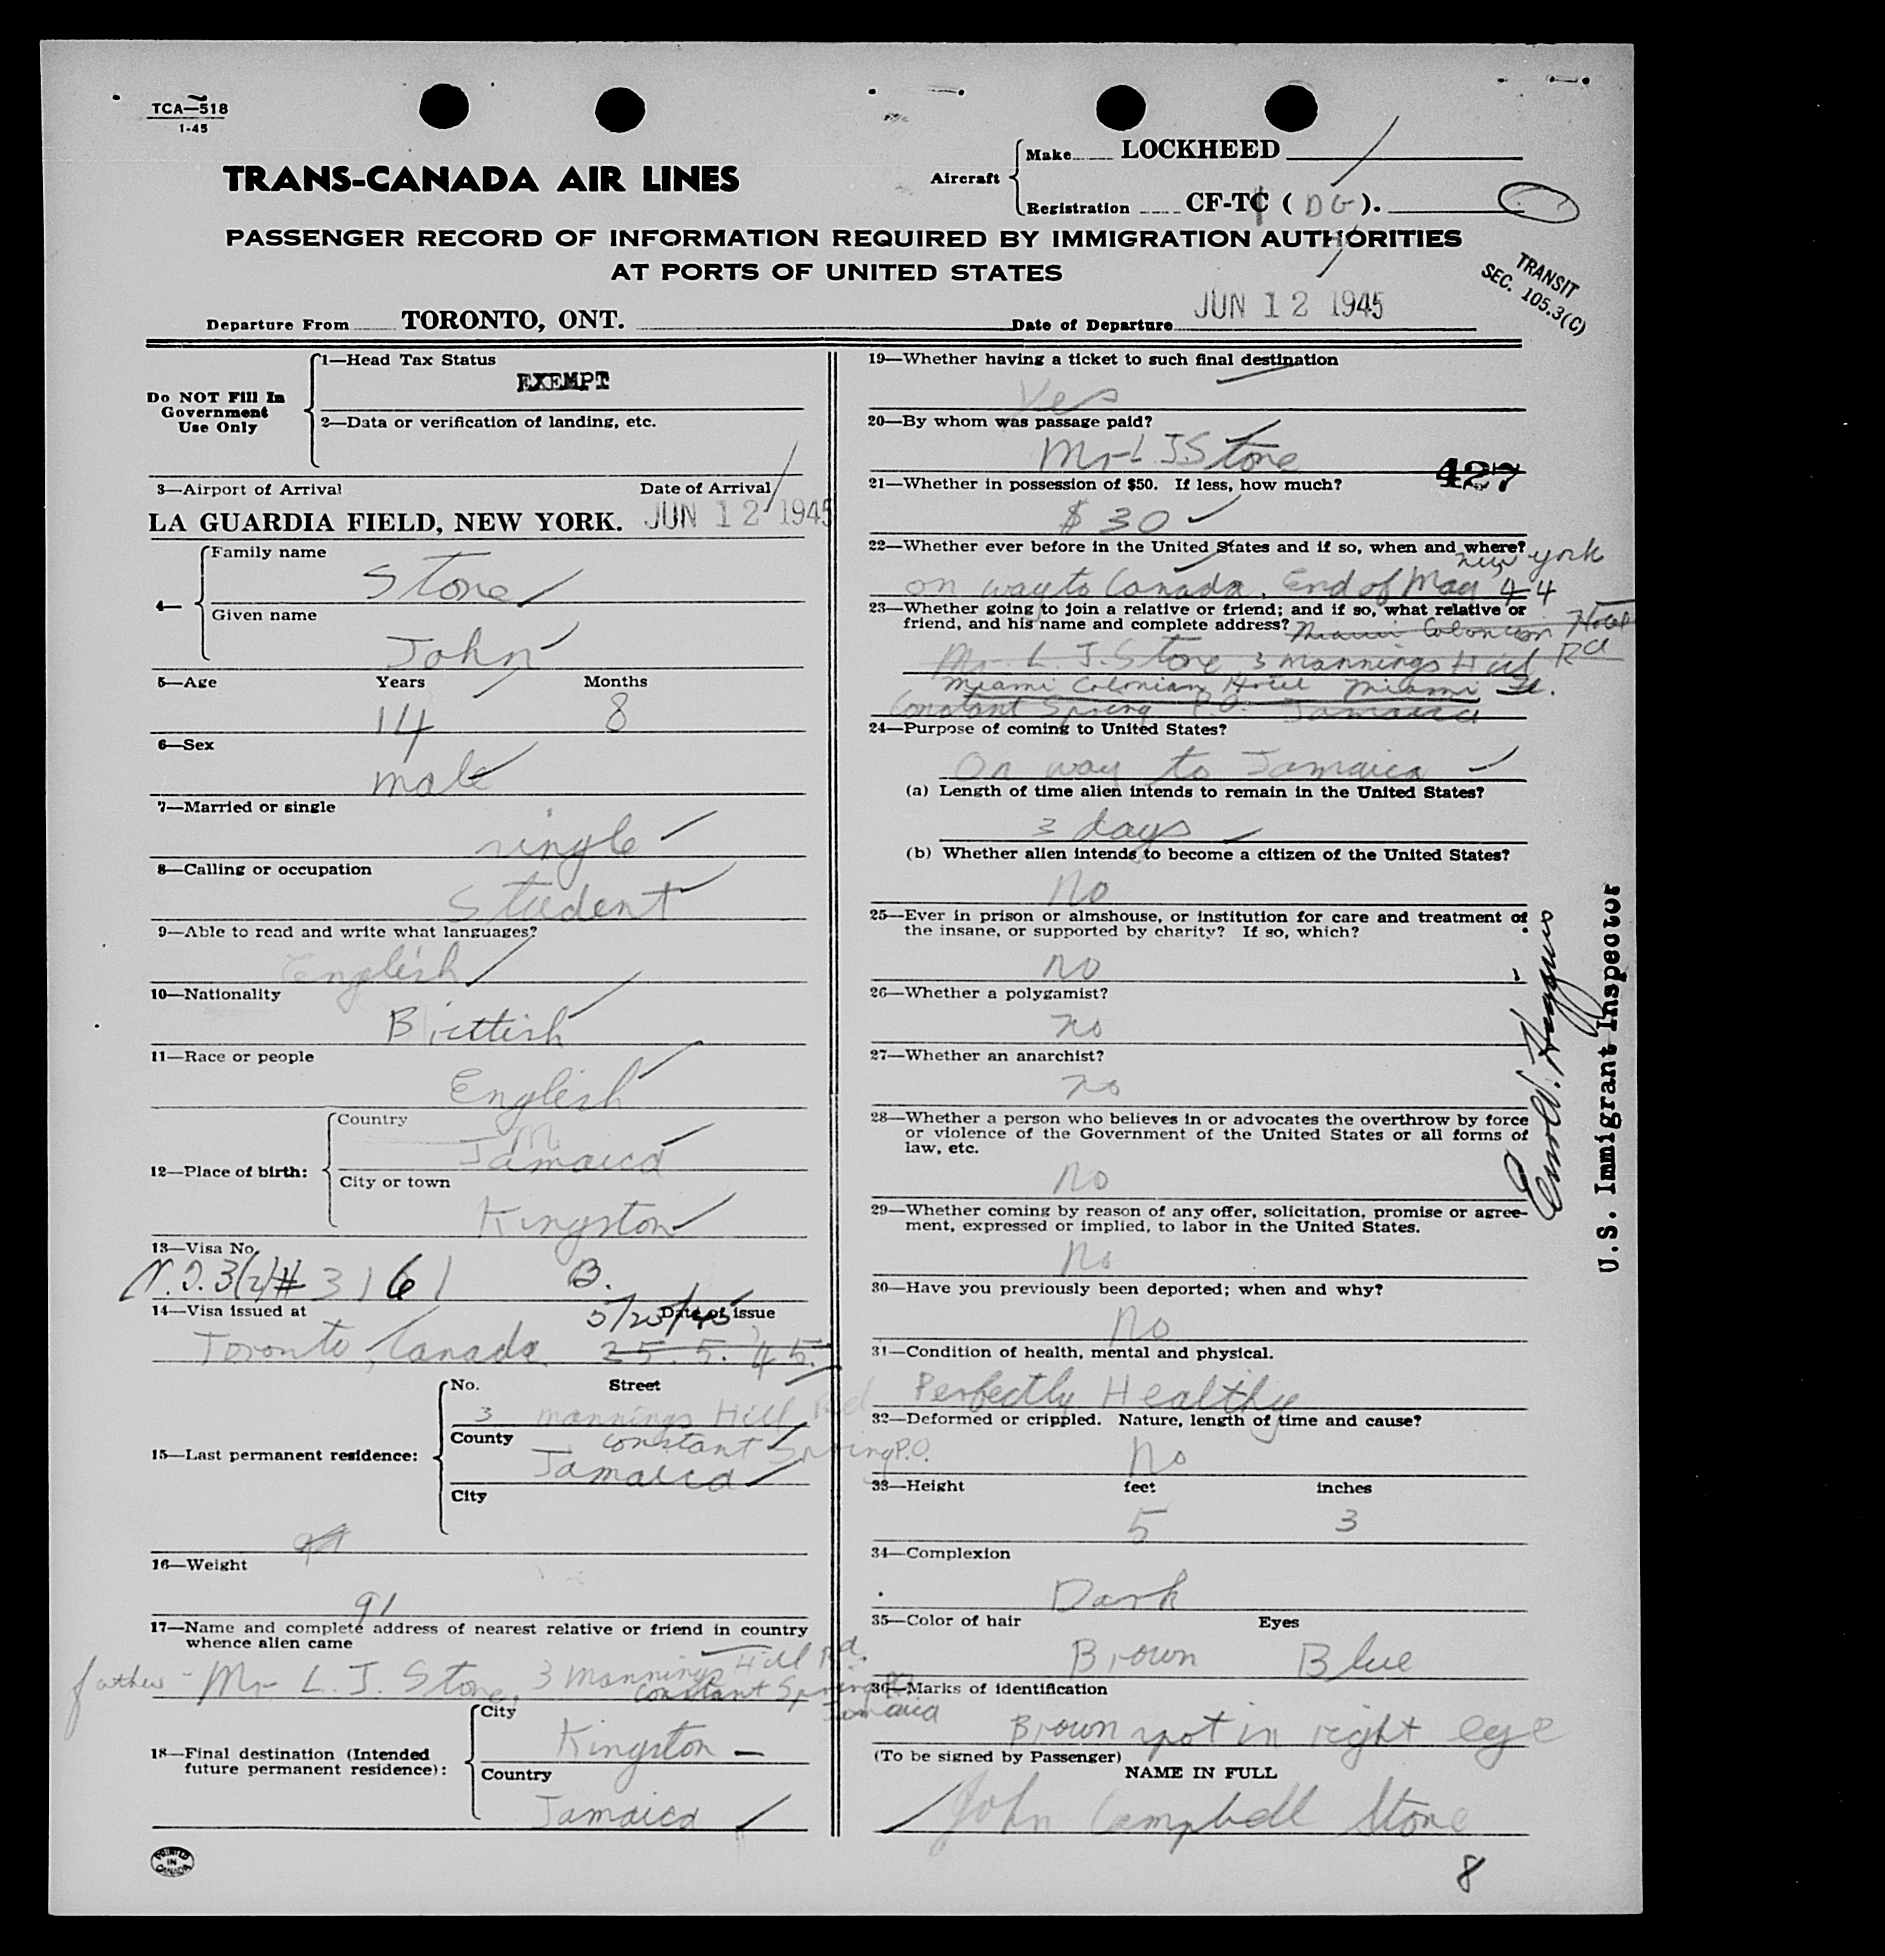 TCA—518
1-45
TRANS-CANADA AIR LINES
Aircraft
Make LOCKHEED
Registration CF-TC ( DG ).
PASSENGER RECORD OF INFORMATION REQUIRED BY IMMIGRATION AUTHORITIES
AT PORTS OF UNITED STATES
TRANSIT
SEC. 105.3(C)
Departure From TORONTO, ONT. Date of Departure JUN 12 1945
Do NOT Fill In
Government
Use Only
1—Head Tax Status
EXEMPT
2—Data or verification of landing, etc.
3—Airport of Arrival Date of Arrival
LA GUARDIA FIELD, NEW YORK. JUN 12 1945
4—
Family name
Stone
Given name
John
5—Age Years Months
14 8
6—Sex
male
7—Married or single
single
8—Calling or occupation
Student
9—Able to read and write what languages?
English
10—Nationality
Brittish
11—Race or people
English
12—Place of birth:
Country
Jamaica
City or town
Kingston
13—Visa No.
3(2)# 3161 B.
14—Visa issued at Date of issue
5/25/45
Toronto, Canada 25. 5. 45.
15—Last permanent residence:
No. Street
3 mannings Hill Rd
County constant Spring P.O.
Jamaica
City
16—Weight
91
17—Name and complete address of nearest relative or friend in country
whence alien came
father - Mr L. J. Stone, 3 Mannings Hill Rd.
Constant Spring P.O.
Jamaica
18—Final destination (Intended
future permanent residence):
City
Kingston —
Country
Jamaica
PRINTED
IN
CANADA
19—Whether having a ticket to such final destination
Yes
20—By whom was passage paid?
Mr L J Stone
427
21—Whether in possession of $50. If less, how much?
$ 30
22—Whether ever before in the United States and if so, when and where?
new york
on way to Canada. End of May 44
23—Whether going to join a relative or friend; and if so, what relative or
friend, and his name and complete address? Miami Colonian Hotel
Mr. L. J. Stone 3 mannings Hill Rd
Miami Colonian Hotel Miami Fl.
Constant Spring P.O. Jamaica
24—Purpose of coming to United States?
On way to Jamaica
(a) Length of time alien intends to remain in the United States?
3 days
(b) Whether alien intends to become a citizen of the United States?
No
25—Ever in prison or almshouse, or institution for care and treatment of
the insane, or supported by charity? If so, which?
no
26—Whether a polygamist?
no
27—Whether an anarchist?
no
28—Whether a person who believes in or advocates the overthrow by force
or violence of the Government of the United States or all forms of
law, etc.
No
29—Whether coming by reason of any offer, solicitation, promise or agree-
ment, expressed or implied, to labor in the United States.
No
30—Have you previously been deported; when and why?
No
31—Condition of health, mental and physical.
Perfectly Healthy
32—Deformed or crippled. Nature, length of time and cause?
No
33—Height feet inches
5 3
34—Complexion
Dark
35—Color of hair Eyes
Brown Blue
36—Marks of identification
Brown spot in right eye
(To be signed by Passenger)
NAME IN FULL
John Campbell Stone
8
U.S. Immigrant Inspector